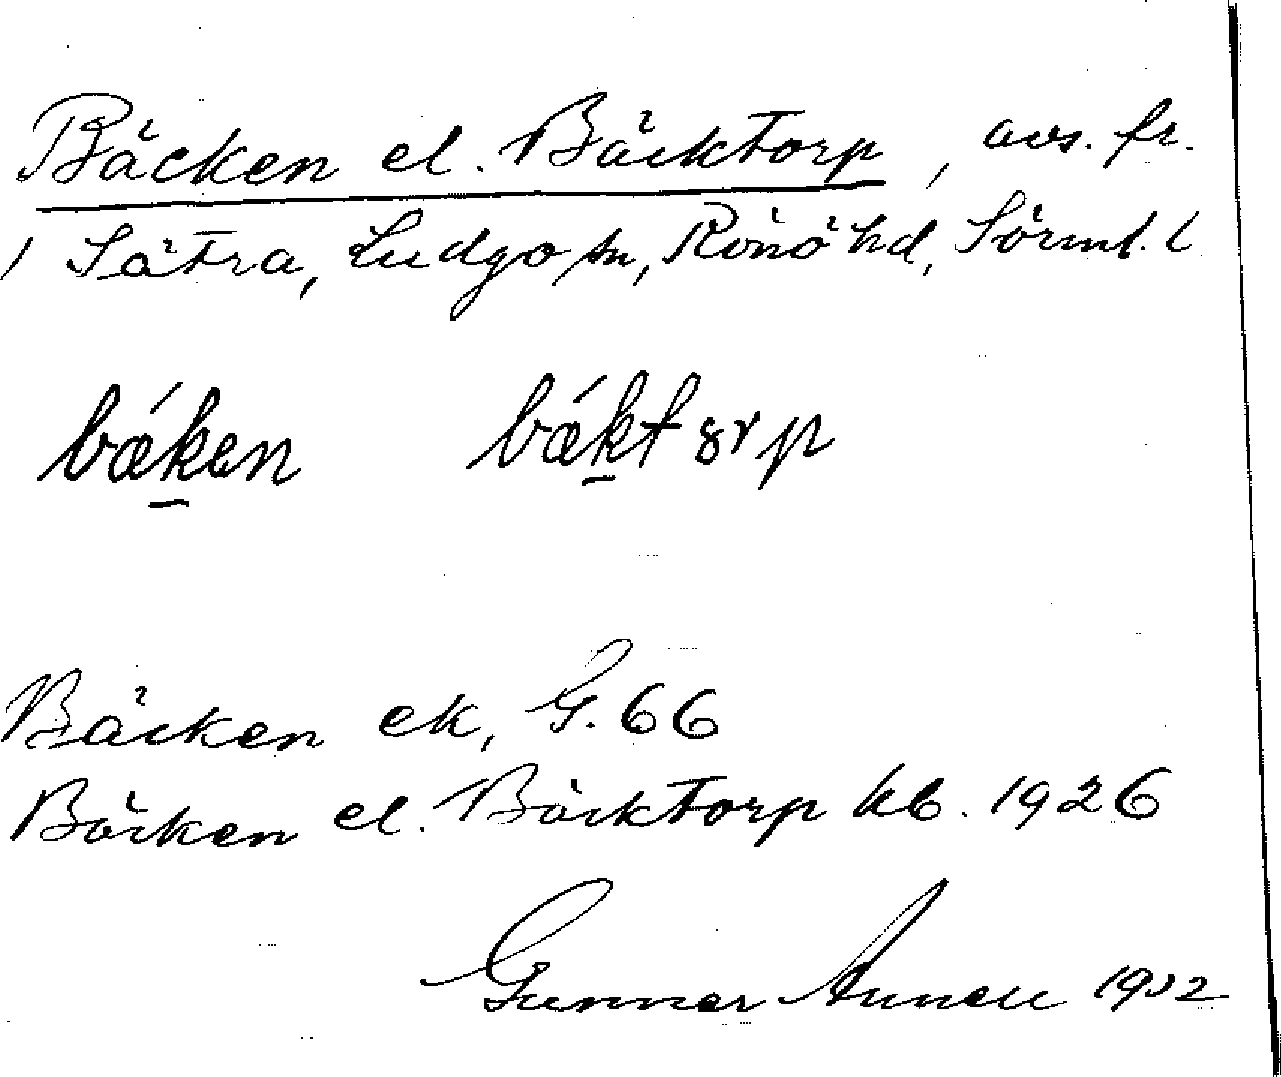 Bäcken el. Bäcktorp, avs. fr.
1 Sätra, Ludgo sn, Rönö hd, Sörml. l
bǽk̠en bǽk̠tȣrp
Bäcken ek, G. 66
Bäcken el. Bäcktorp kb. 1926
Gunnar 19